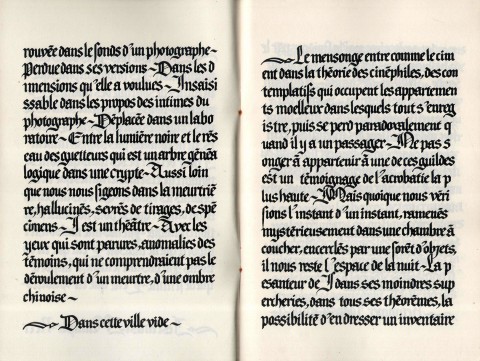 rouvée dans le fonds d'un photographe~
Perdue dans ses versions~Dans les d
imensions qu'elle a voulues~Insaisi
ssable dans les propos des intimes du
photographe~Déplacée dans un labo
ratoire~Entre la lumière noire et le rés
eau des guetteurs qui est un arbre généa
logique dans une crypte~Aussi loin
que nous nous figeons dans la meurtriè
re, hallucinés, sevrés de tirages, de spé
cimens~I est un théâtre~Avec les
yeux qui sont parures, anomalies des
témoins, qui ne comprendraient pas le
déroulement d'un meurtre, d'une ombre
chinoise~
~Dans cette ville vide~
~Le mensonge entre comme le cim
ent dans la théorie des cinéphiles, des con
templatifs qui occupent les appartemen
ts moelleux dans lesquels tout s'enreg
istre, puis se perd paradoxalement q
uand il y a un passager~Ne pas s
onger à appartenir à une de ces guildes
est un témoignage de l'acrobatie la p
lus haute~Mais quoique nous véri
sions l'instant d'un instant, ramenés
mystérieusement dans une chambre à
coucher, encerclés par une forêt d'objets,
il nous reste l'espace de la nuit~La p
esanteur de I dans ses moindres sup
ercheries, dans tous ses théorèmes, la
possibilité d'en dresser un inventaire